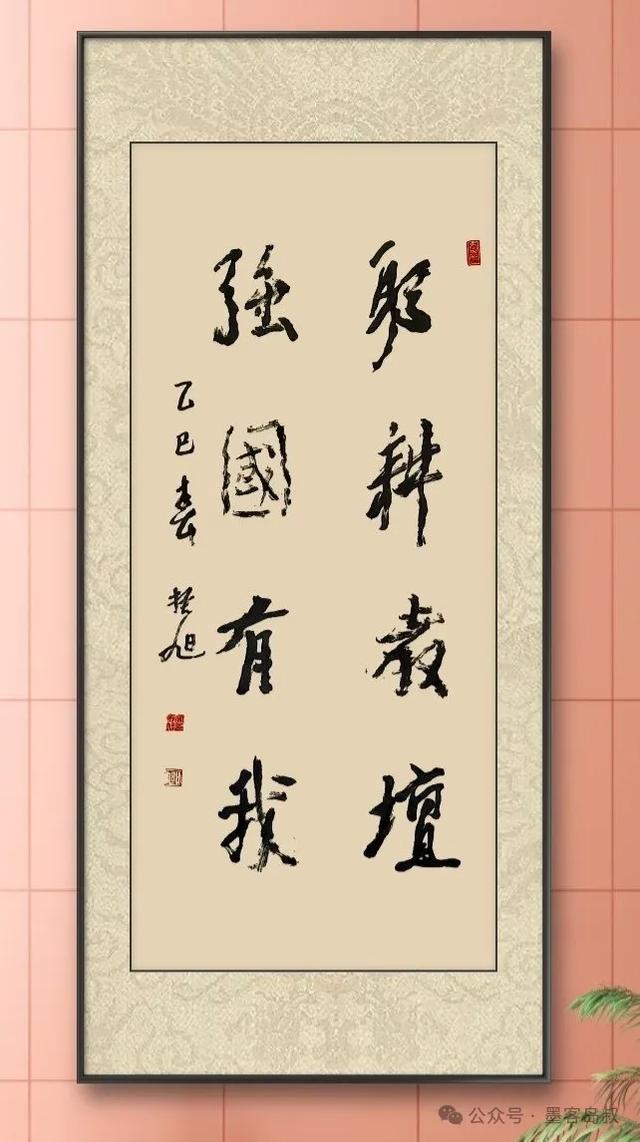 躬耕教壇
強國有我
乙巳春
旭
公众号 · 墨客岛叔